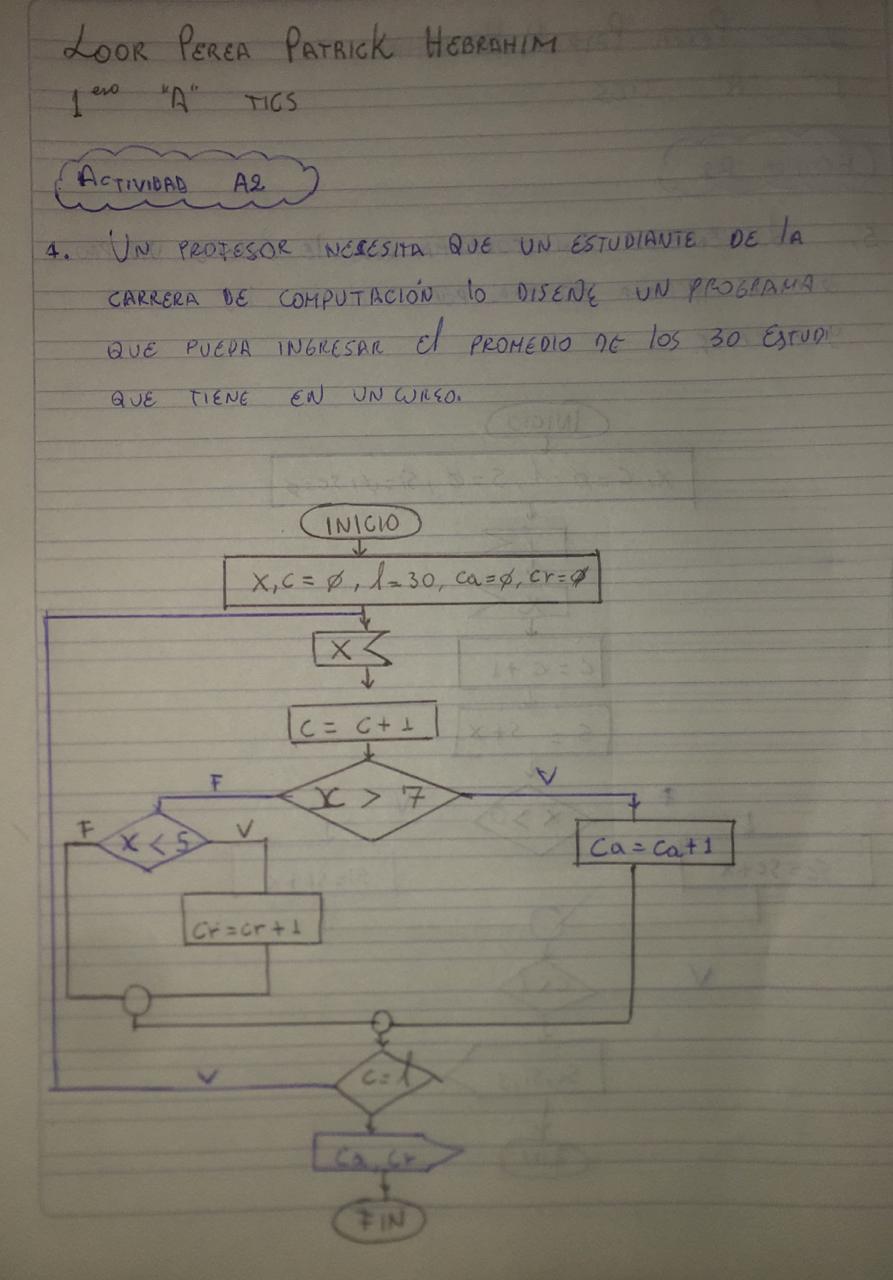 LOOR PEREA PATRICK HEBRAHIM
1ero "A" TICS
ACTIVIDAD A2
1. UN PROFESOR NECESITA QUE UN ESTUDIANTE DE lA
CARRERA DE COMPUTACIÓN lo DISEÑE UN PROGRAMA
QUE PUEDA INGRESAR El PROMEDIO DE los 30 ESTUDI
QUE TIENE EN UN CURSO.
INICIO
X, C = ∅, l = 30, Ca = ∅, Cr = ∅
X
C = C + 1
F X > 7 V
F X < 5 V
Ca = Ca + 1
Cr = Cr + 1
C = l
V
Ca, Cr
FIN